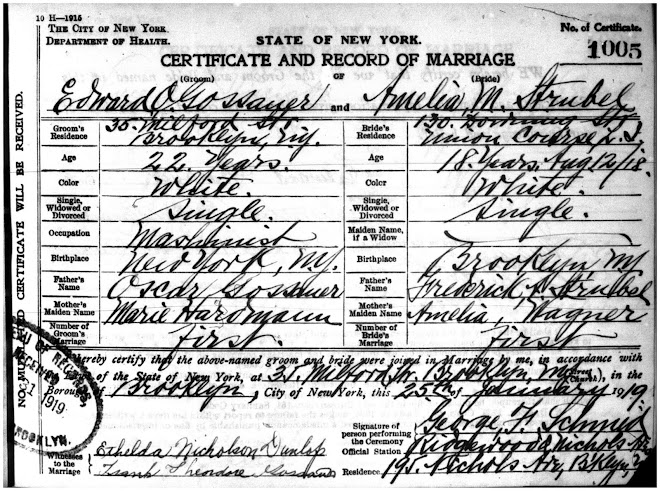 10 H—1915
THE CITY OF NEW YORK.
DEPARTMENT OF HEALTH.
STATE OF NEW YORK.
No. of Certificate.
1005
CERTIFICATE AND RECORD OF MARRIAGE
(Groom) OF (Bride)
Edward O. Gossauer and Amelia M. Strubel
Groom's Residence 35 Milford St. Brooklyn, N.Y.
Bride's Residence 130 Downing St Union Course L. I.
Age 22 Years.
Age 18 Years. Aug 12/18.
Color White.
Color White.
Single, Widowed or Divorced Single.
Single, Widowed or Divorced Single.
Occupation Mashinist
Maiden Name, if a Widow
Birthplace New York, N.Y.
Birthplace Brooklyn, N.Y.
Father's Name Oscar Gossauer
Father's Name Frederick Strubel
Mother's Maiden Name Marie Hardmann
Mother's Maiden Name Amelia Wagner
Number of Groom's Marriage First.
Number of Bride's Marriage First
hereby certify that the above-named groom and bride were joined in Marriage by me, in accordance with
of the State of New York, at 35 Milford St., Brooklyn, (Church), in the
Borough of Brooklyn, City of New York, this 25th of January 1919
Signature of person performing the Ceremony George F. Schmid
Official Station Ridgewood & Nichols Ave
Residence 195 Nichols Ave, B'klyn,
Witnesses to the Marriage
Ethelda Nicholson Dunlop
Frank Theodore
NO MUTILATED CERTIFICATE WILL BE RECEIVED.
RECEIVED
31 1919
BROOKLYN.